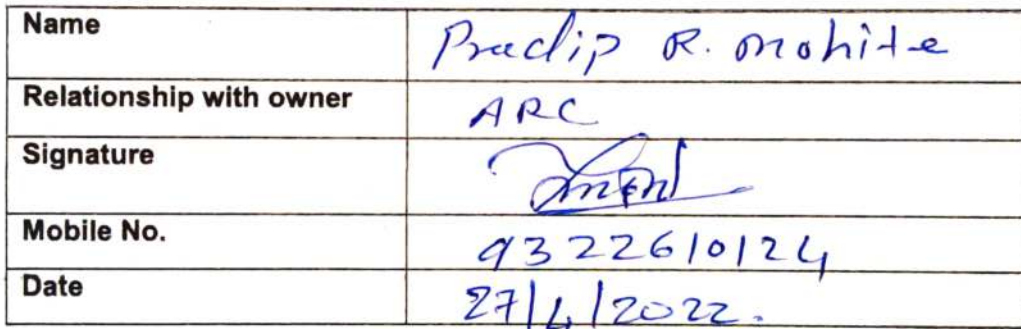 Name Pradip R. Mohite
Relationship with owner ARC
Signature
Mobile No. 9322610124
Date 27/4/2022.